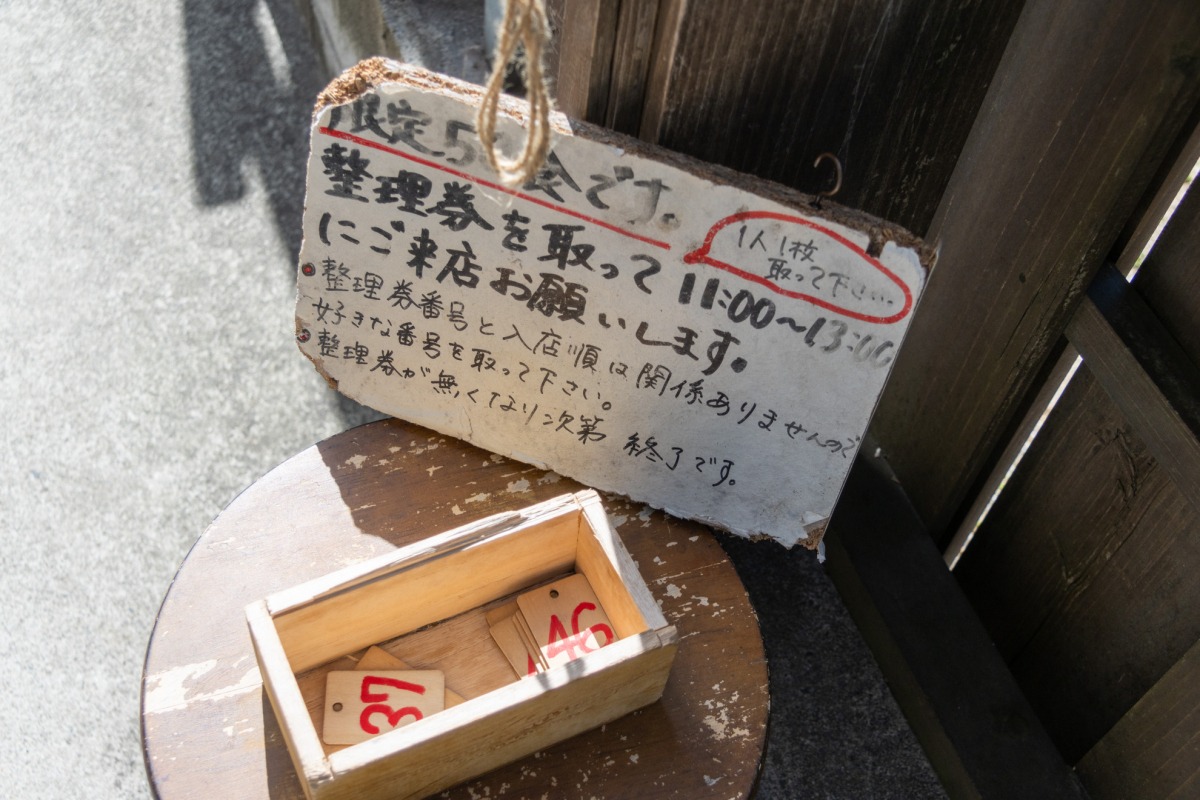 限定5 食です。
整理券を取って 11:00~13:00
にご来店お願いします。
1人1枚
取って下さい…
整理券番号と入店順は関係ありませんので
好きな番号を取って下さい。
整理券が無くなり次第 終了です。
37
46